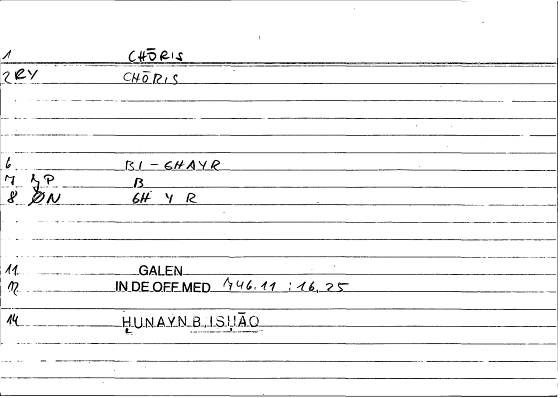 1 CHŌRIS
2 RY CHŌRIS
6 BI-GHAYR
7 B
8 ØN GH Y R
11 GALEN
12 IN DE OFF.MED 746.11 : 16, 25
14 ḤUNAYN B. ISḤĀQ